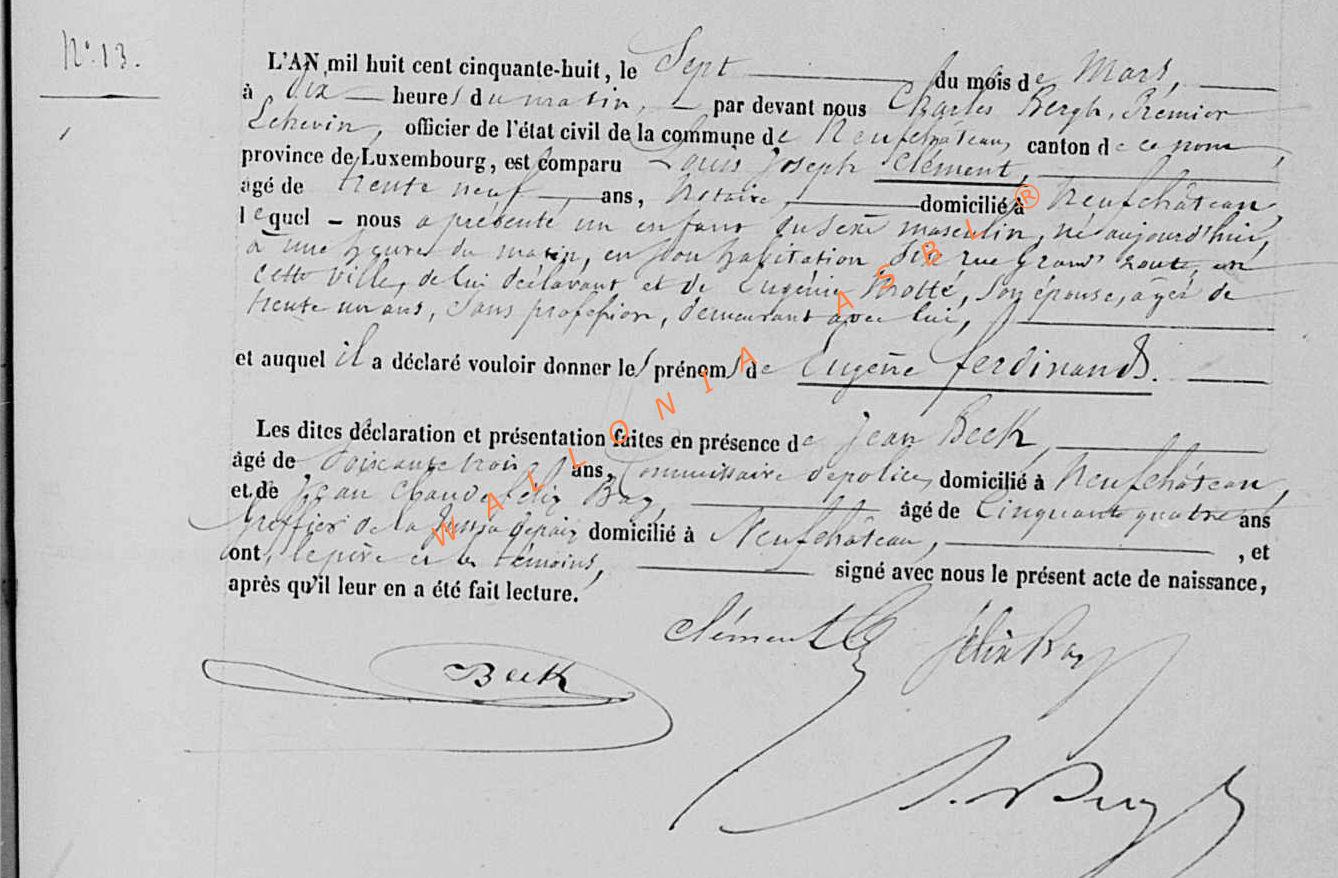 N° 13.
L'AN mil huit cent cinquante-huit, le Sept du mois de Mars,
à dix heures du matin, par devant nous Charles Bergh, Premier
Echevin, officier de l'état civil de la commune de Neufchâteau, canton de ce nom,
province de Luxembourg, est comparu Louis Joseph Clément,
agé de trente neuf ans, Notaire, domicilié à Neufchâteau,
lequel nous a présenté un enfant du sexe masculin, né aujourd'hui,
à une heure du matin, en son habitation sise rue Grand' route, en
cette ville, de lui déclarant et de Eugénie Motte, son épouse, agée de
trente un ans, sans profession, demeurant avec lui,
et auquel il a déclaré vouloir donner les prénoms de Eugène ferdinand.
Les dites déclaration et présentation faites en présence de Jean Beck,
âgé de soixante trois ans, Commissaire de police, domicilié à Neufchâteau,
et de Jean Claude félix Bay, âgé de Cinquante quatre ans
Greffier de la Justice de paix domicilié à Neufchâteau, , et
ont, le père et les témoins, signé avec nous le présent acte de naissance,
après qu'il leur en a été fait lecture.
Clément félix Bay
Beck
WALLONIA ASBL ®